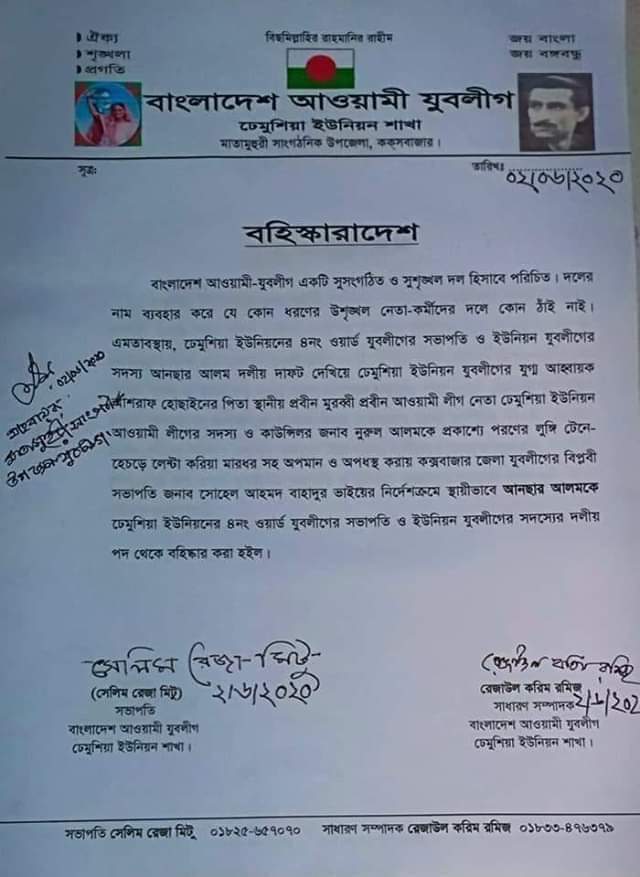 ঐক্য
শৃঙ্খলা
প্রগতি
বিছমিল্লাহির রাহমানির রাহীম
জয় বাংলা
জয় বঙ্গবন্ধু
বাংলাদেশ আওয়ামী যুবলীগ
ঢেমুশিয়া ইউনিয়ন শাখা
মাতামুহুরী সাংগঠনিক উপজেলা, কক্সবাজার।
সূত্রঃ
তারিখঃ ০২/০৬/২০২০
বহিস্কারাদেশ
বাংলাদেশ আওয়ামী-যুবলীগ একটি সুসংগঠিত ও সুশৃঙ্খল দল হিসাবে পরিচিত। দলের
নাম ব্যবহার করে যে কোন ধরণের উশৃঙ্খল নেতা-কর্মীদের দলে কোন ঠাঁই নাই।
এমতাবস্থায়, ঢেমুশিয়া ইউনিয়নের ৪নং ওয়ার্ড যুবলীগের সভাপতি ও ইউনিয়ন যুবলীগের
সদস্য আনছার আলম দলীয় দাফট দেখিয়ে ঢেমুশিয়া ইউনিয়ন যুবলীগের যুগ্ম আহ্বায়ক
আশরাফ হোছাইনের পিতা স্থানীয় প্রবীন মুরব্বী প্রবীন আওয়ামী লীগ নেতা ঢেমুশিয়া ইউনিয়ন
আওয়ামী লীগের সদস্য ও কাউন্সিলর জনাব নুরুল আলমকে প্রকাশ্যে পরণের লুঙ্গি টেনে-
হেচড়ে লেন্টা করিয়া মারধর সহ অপমান ও অপধস্থ করায় কক্সবাজার জেলা যুবলীগের বিপ্লবী
সভাপতি জনাব সোহেল আহমদ বাহাদুর ভাইয়ের নির্দেশক্রমে স্থায়ীভাবে আনছার আলমকে
ঢেমুশিয়া ইউনিয়নের ৪নং ওয়ার্ড যুবলীগের সভাপতি ও ইউনিয়ন যুবলীগের সদস্যের দলীয়
পদ থেকে বহিস্কার করা হইল।
০২/০৬/২০২০
আহবায়ক
সেলিম রেজা-মিটু
২/৬/২০২০
(সেলিম রেজা মিটু)
সভাপতি
বাংলাদেশ আওয়ামী যুবলীগ
ঢেমুশিয়া ইউনিয়ন শাখা।
রেজাউল করিম রমিজ
সাধারণ সম্পাদক
বাংলাদেশ আওয়ামী যুবলীগ
ঢেমুশিয়া ইউনিয়ন শাখা।
সভাপতি সেলিম রেজা মিটু ০১৮২৫-৬৫৭০৭০ সাধারণ সম্পাদক রেজাউল করিম রমিজ ০১৮৩৩-৪৭৬৩৭৯